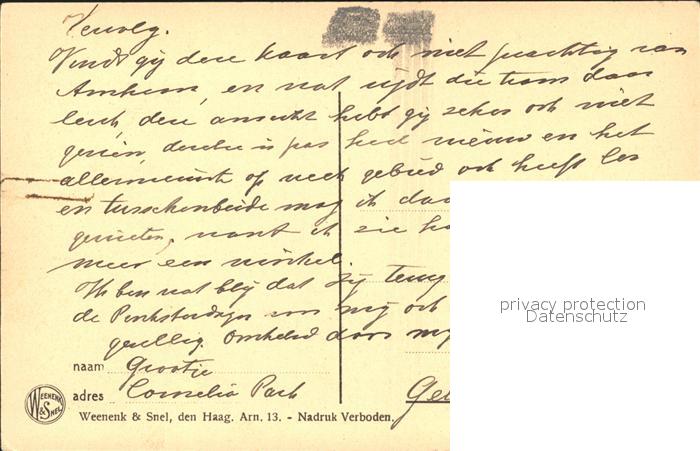 Vervolg.
Vindt gij deze kaart ook niet prachtig van
Arnhem, en wat rijdt die tram daar
leuk, deze ansicht hebt gij zeker ook niet
gezien, deze is pas heel nieuw en het
allernieuwste op neck gebied ook heeft les
en tusschenbeide mag ik daa
genieten, want ik zie ha
meer een winkel.
Ik ben wat blij dat zij terug
de Pinksterdagen voor mij ook
gezellig. Omhelsd door mij
naam Grootje
adres Cornelia Park Gen
WEENENK & SNEL
Weenenk & Snel, den Haag. Arn. 13. - Nadruk Verboden.
privacy protection
Datenschutz